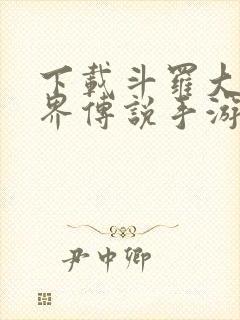 下載斗羅大
界傳說手游
尹中卿